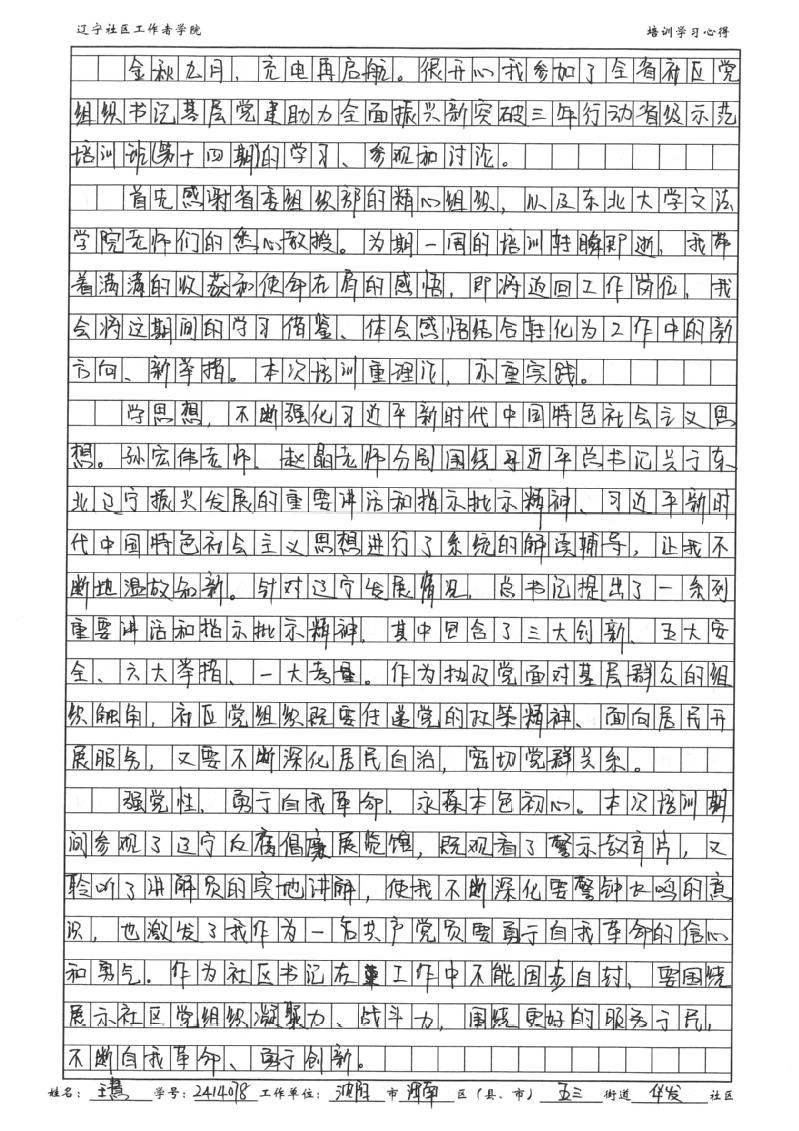 辽宁社区工作者学院 培训学习心得
金秋九月，充电再启航。很开心我参加了全省社区党
组织书记基层党建助力全面振兴新突破三年行动省级示范
培训班(第十四期)的学习、参观和讨论。
首先感谢省委组织部的精心组织，以及东北大学文法
学院老师们的悉心教授。为期一周的培训转瞬即逝，我带
着满满的收获和使命在肩的感悟，即将返回工作岗位，我
会将这期间的学习借鉴、体会感悟结合转化为工作中的新
方向、新举措。本次培训重理论，亦重实践。
学思想，不断强化习近平新时代中国特色社会主义思
想。孙宏伟老师、赵晶老师分别围绕习近平总书记关于东
北辽宁振兴发展的重要讲话和指示批示精神、习近平新时
代中国特色社会主义思想进行了系统的解读辅导，让我不
断地温故知新。针对辽宁发展情况，总书记提出了一系列
重要讲话和指示批示精神，其中包含了三大创新、五大安
全、六大举措、一大考量。作为执政党面对基层群众的组
织触角，社区党组织既要任递党的政策精神、面向居民开
展服务，又要不断深化居民自治，密切党群关系。
强党性，勇于自我革命，永葆本色初心。本次培训期
间参观了辽宁反腐倡廉展览馆，既观看了警示教育片，又
聆听了讲解员的实地讲解，使我不断深化要警钟长鸣的意
识，也激发了我作为一名共产党员要勇于自我革命的信心
和勇气。作为社区书记在工作中不能固步自封，要围绕
展示社区党组织凝聚力、战斗力，围绕更好的服务于民，
不断自我革命、勇于创新。
姓名： 学号：2414078 工作单位：沈阳 市 浑南 区（县、市） 五三 街道 华发 社区